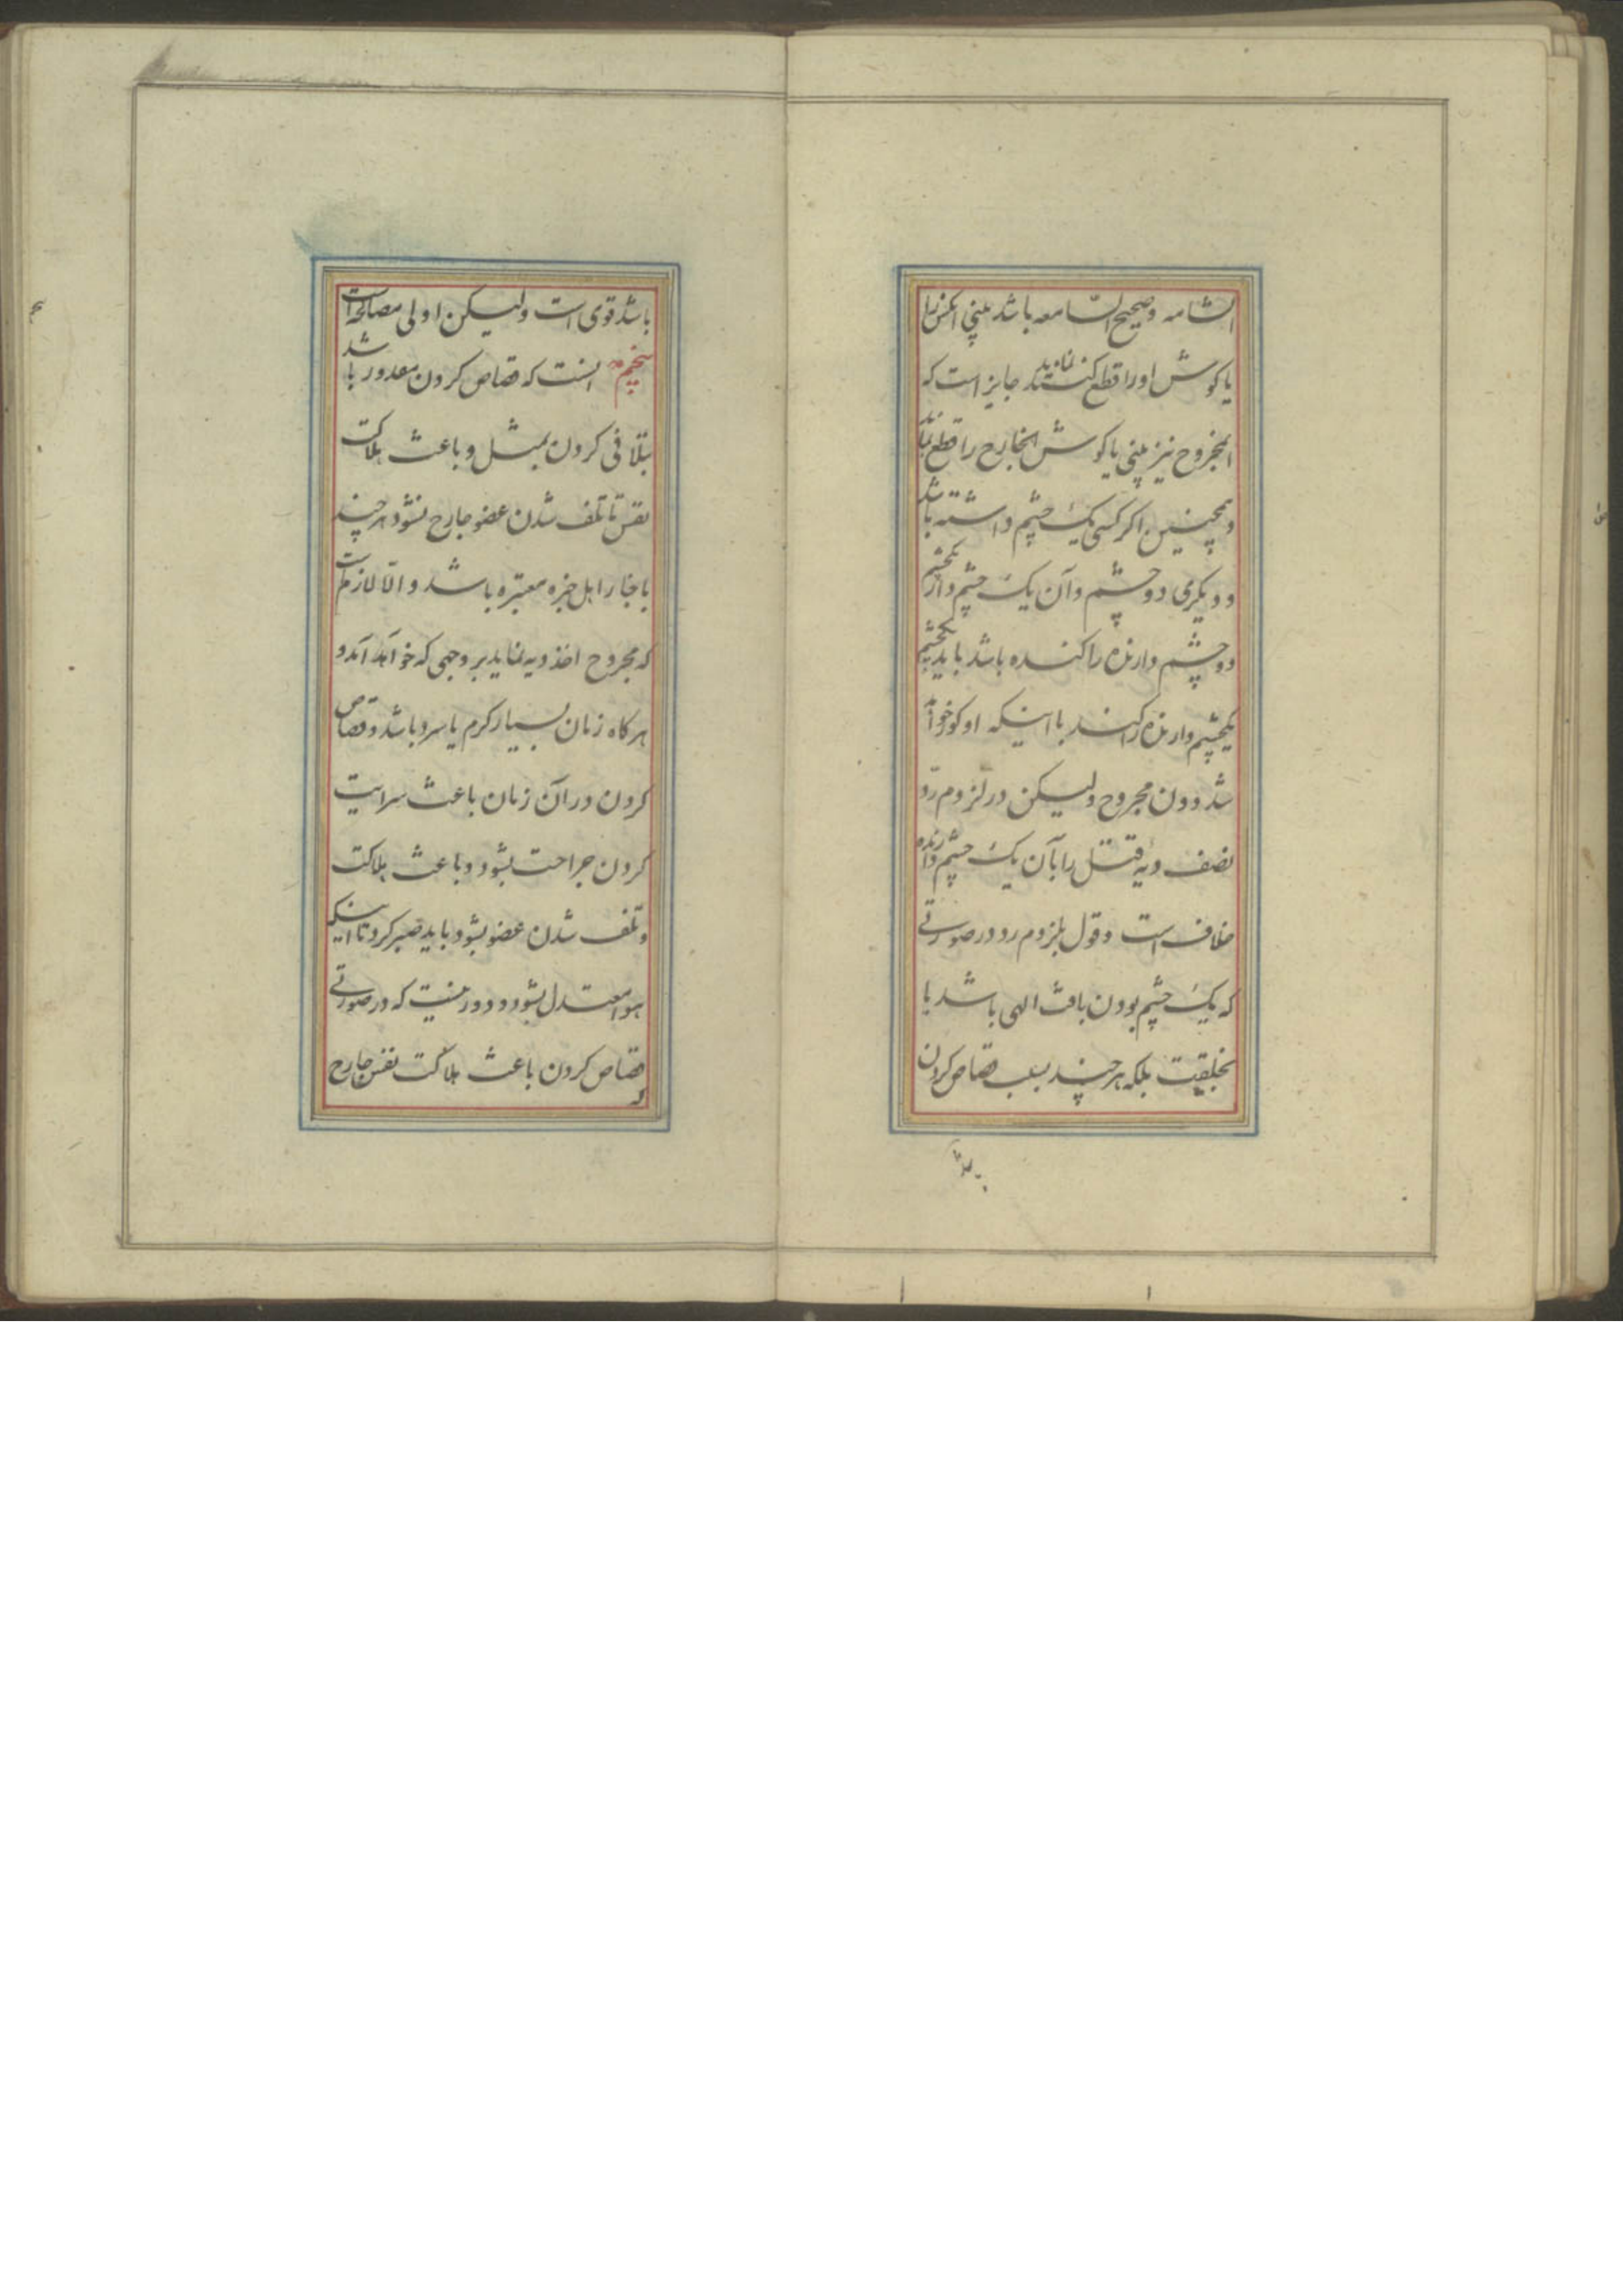 الشامه و صحیح السامعه باشد بینی انکس را
یا کوش او را قطع کنند نماید جایز است که
المجروح نیز بینی یا کوش الجارح را قطع نماید
و همچنین اکر کسی یک چشم داشته باشد
و دیکری دو چشم و آن یک چشم دار یکچشم
دو چشم دارنده را کنده باشد باید یکچشم
یکچشم دارنده را کنند با اینکه او کور خواهد
شد دون مجروح ولیکن در لزوم ردّ
نصف دیه قتل را بآن یک چشم دارنده
خلاف است و قول بلزوم رد در صورتی
که یک چشم بودن بافت الهی باشد یا
بخلیقت بلکه هر چند بسبب قصاص کردن
باشد
باشد قوی است ولیکن اولی مصالحه است
پنجم انست که قصاص کردن مقدور باشد
بتلافی کردن بمثل و باعث هلاکت
نفس تا تلف شدن عضو جارح نشود هر چند
باخبار اهل خبره معتبره باشد و الّا لازم است
که مجروح اخذ دیه نماید بر وجهی که خواهد آمد و
هر کاه زمان بسیار کرم یا سرد باشد و قصاص
کردن در آن زمان باعث سرایت
کردن جراحت بشود و باعث هلاکت
و تلف شدن عضو بشود باید صبر کرد تا اینکه
هوا معتدل بشود و دور نیست که در صورتی
که قصاص کردن باعث هلاکت نفس جارح